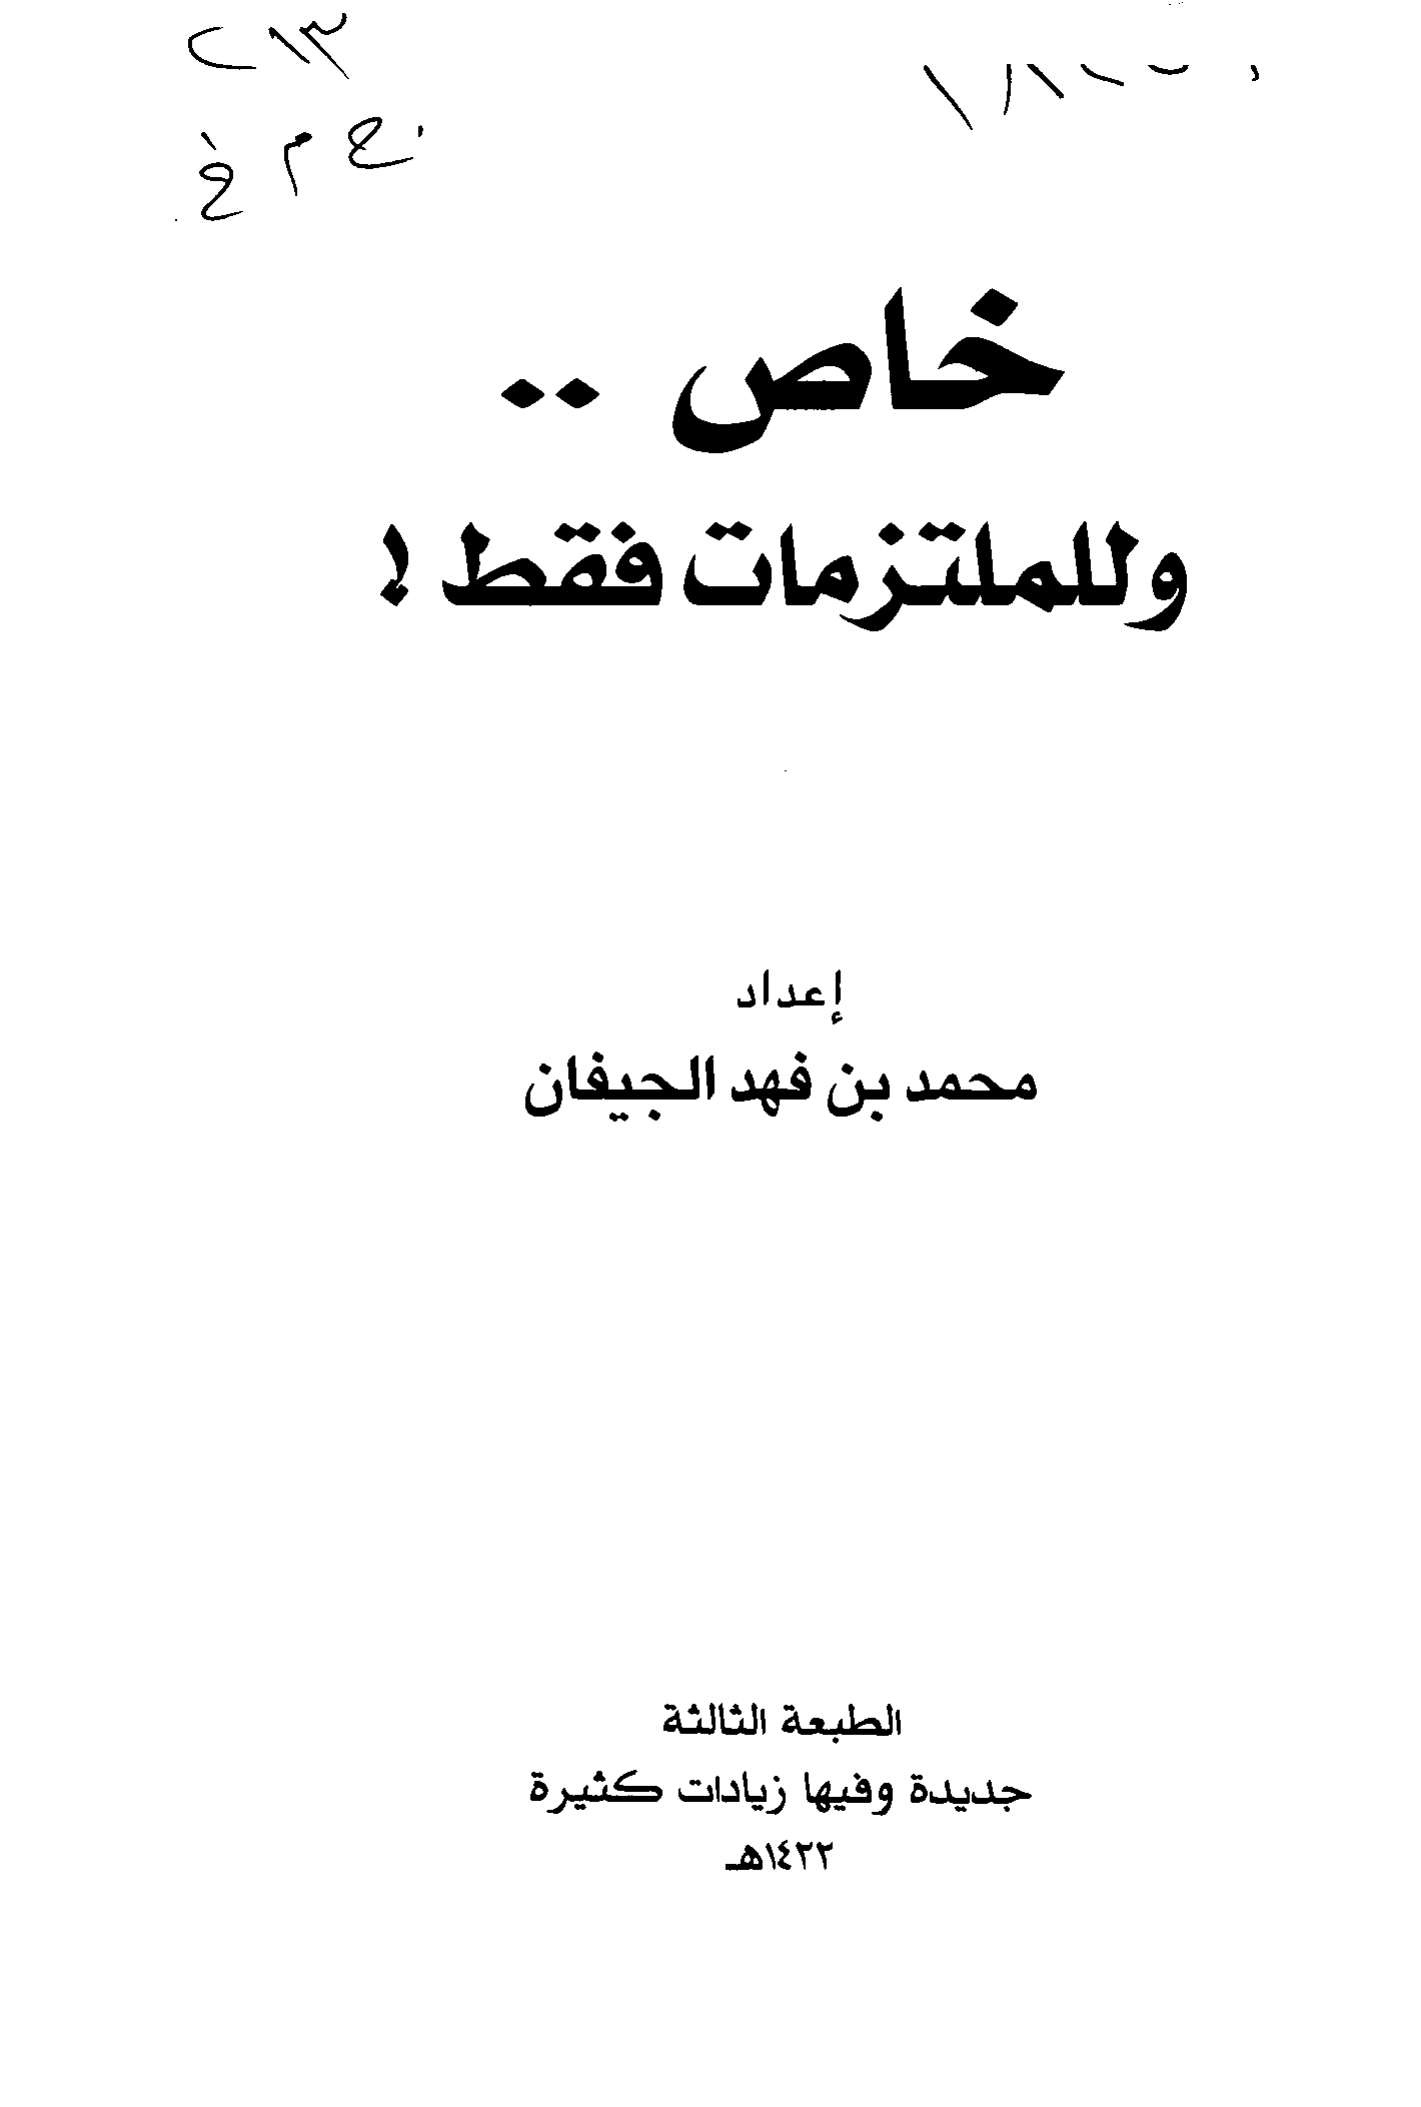 ٢١٣
ج م خ
خاص ..
وللملتزمات فقط !
إعداد
محمد بن فهد الجيفان
الطبعة الثالثة
جديدة وفيها زيادات كثيرة
١٤٢٢هـ